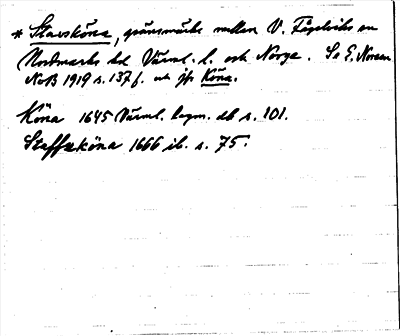 * Stavsköna, gränsmärke mellan V. Fågelviks sn
Nordmarks hd Värml. l. och Norge. Se E. Noreen
NoB 1919 s. 137 f. och jfr Köna.
Köna 1645 Värml. lagm. db s. 101.
Staffzköna 1666 ib. s. 75.